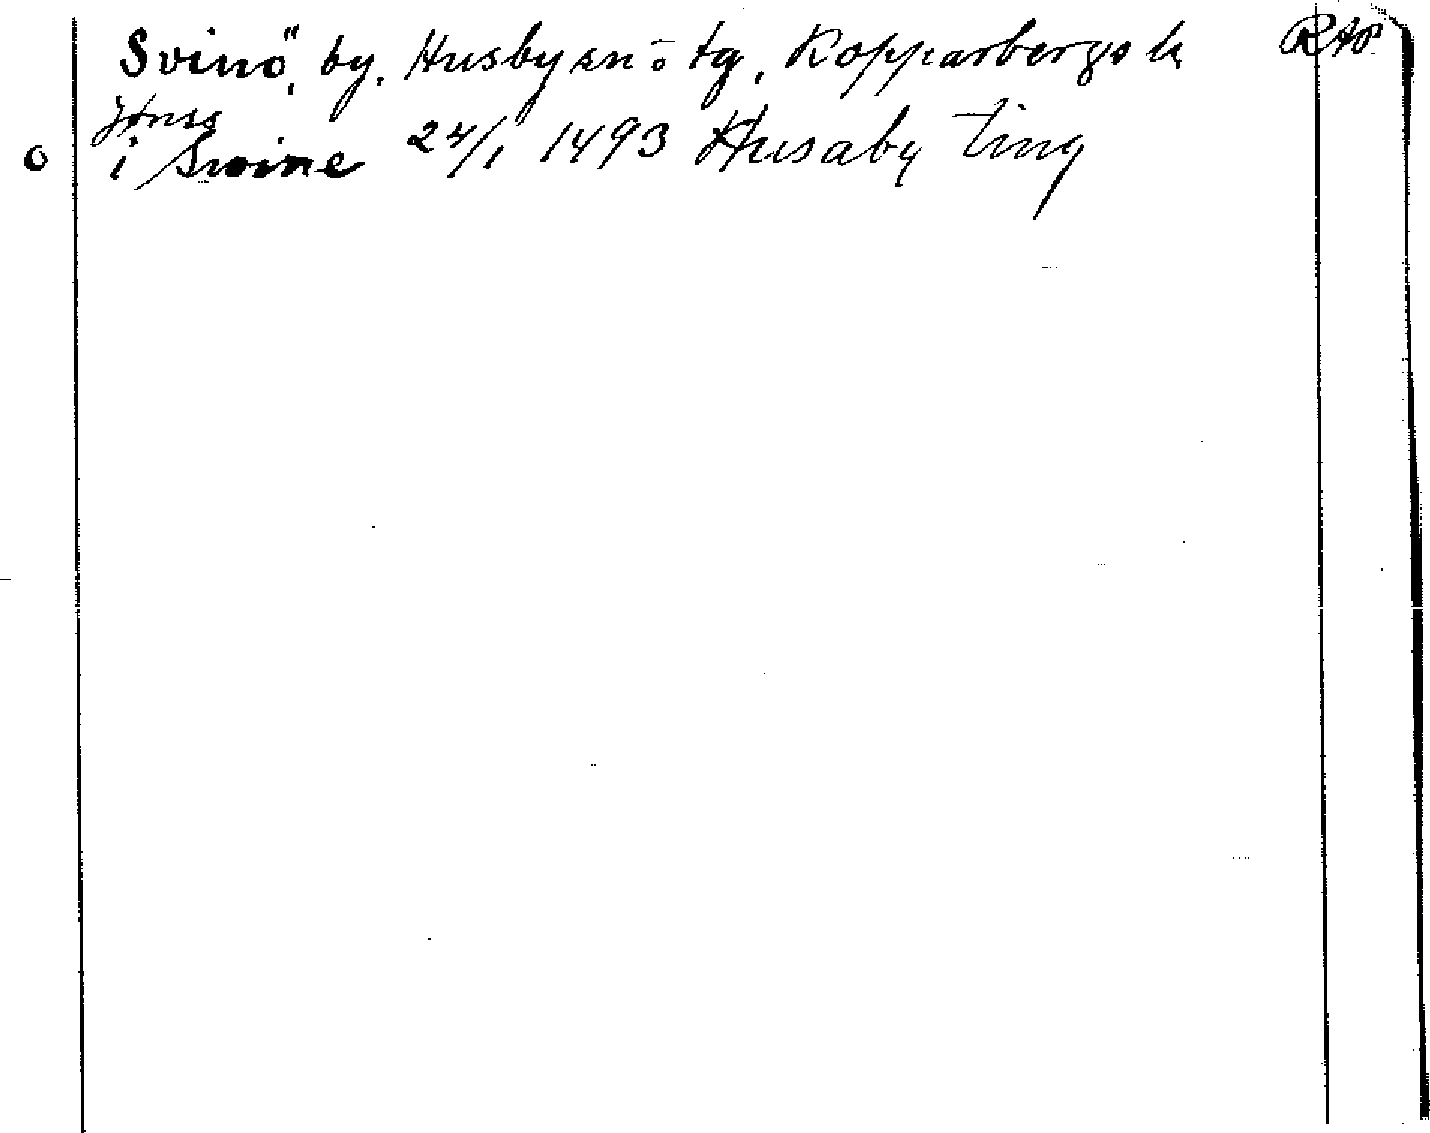 Svinö, by. Husby sn o tg, Kopparbergs l. RAP
Jönss
o i Swine 24/1 1493 Husaby ting